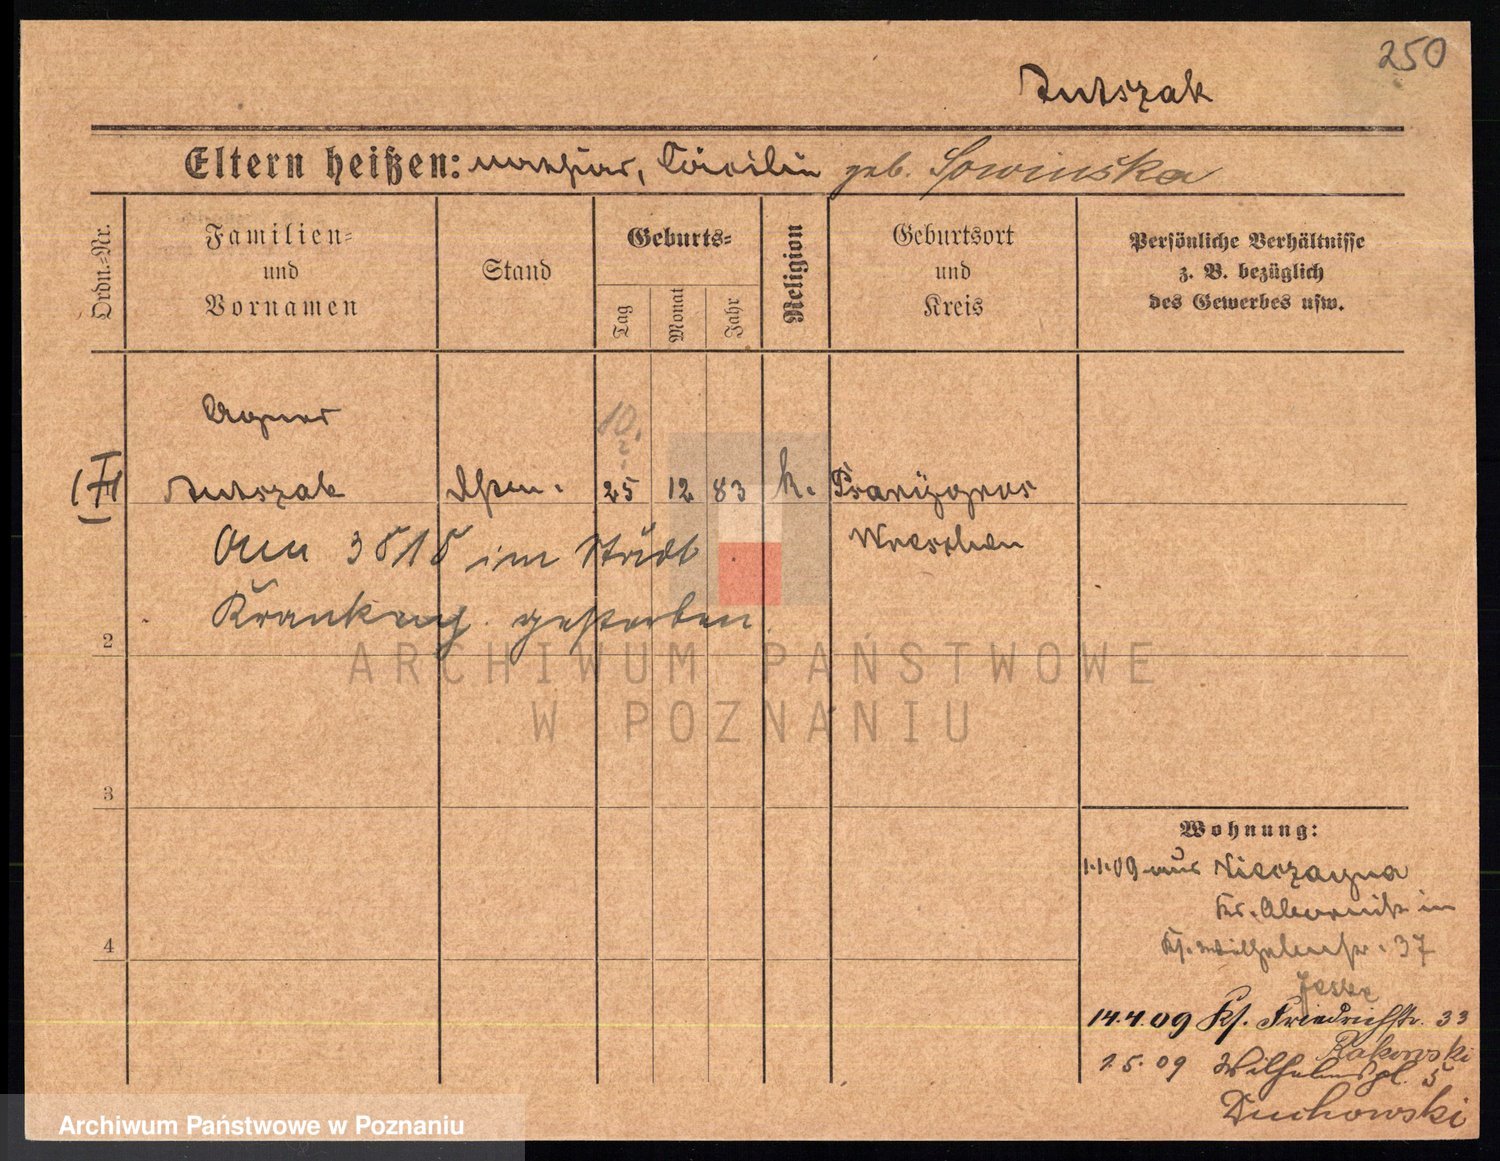 250
Eltern heißen: Mathias, Cäcilie geb. Sowinska
Ordn.-Nr.
Familien-
und
Vornamen
Stand
Geburts-
Tag
Monat
Jahr
Religion
Geburtsort
und
Kreis
Persönliche Verhältnisse
z. B. bezüglich
des Gewerbes usw.
Agnes
10.
25 12 83 k.
Wreschen
am 3 5 15 im Städt
Krankenh. gestorben
2
3
4
Wohnung:
1.1.09 aus
Kr. Obornik in
Wilhelmstr. 37
Jeske
14.4.09 Friedrichstr. 33
Rakowski
1.5.09 Wilhelmspl. 5
Duchowski
ARCHIWUM PAŃSTWOWE
W POZNANIU
Archiwum Państwowe w Poznaniu